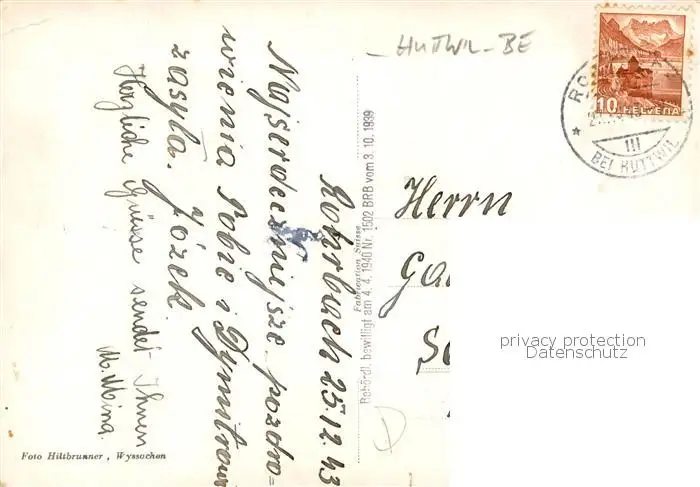 HUTTWIL-BE
10 HELVETIA
III
BEI HUTTWIL
Rohrbach 25.12.43
Najserdeczniejsze pozdro-
wienia Tobie i Dymitrowi
zasyła. Józek
Herzliche Grüsse sendet Ihnen
M. Mina.
Fabrication Suisse
Behördl. bewilligt am 4. 4. 1940 Nr. 1502 BRB vom 3. 10. 1939
Herrn
privacy protection
Datenschutz
D
Foto Hiltbrunner, Wyssachen